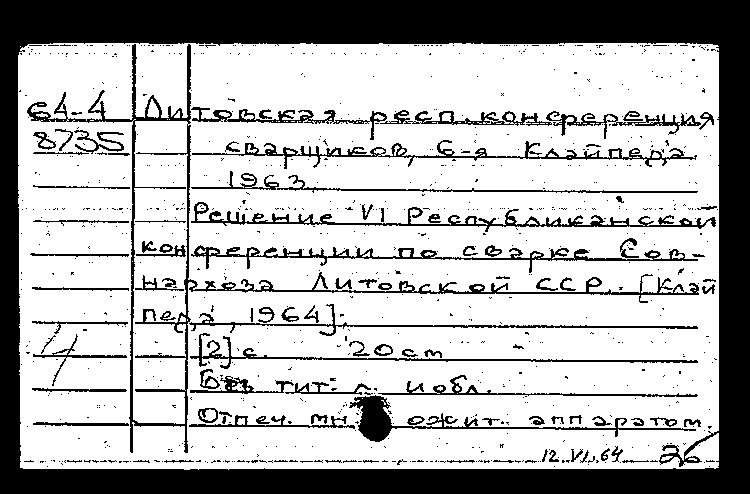 64-4 Литовская респ. конференция
8735 сварщиков, 6-я Клайпеда.
1963.
Решение VI Республиканской
конференции по сварке Сов-
нархоза Литовской ССР. [Клай
педа, 1964].
[2] с. 20 cm
Без тит. л. и обл.
Отпеч. мн ожит. аппаратом.
12.VI.64 26